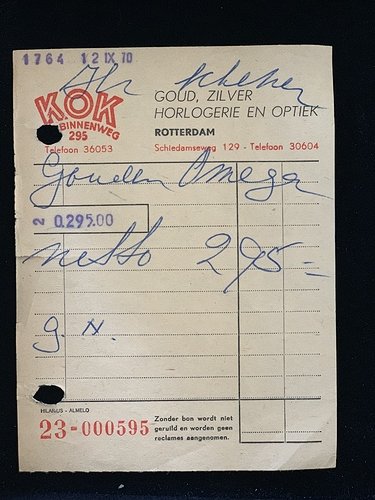 1764 12 IX 70
Dhr
KOK
BINNENWEG
295
Telefoon 36053
GOUD, ZILVER
HORLOGERIE EN OPTIEK
ROTTERDAM
Schiedamseweg 129 - Telefoon 30604
Gouden Omega
2 0.295.00
netto 295=
g. N.
HILARIUS - ALMELO
23-000595
Zonder bon wordt niet
geruild en worden geen
reclames aangenomen.